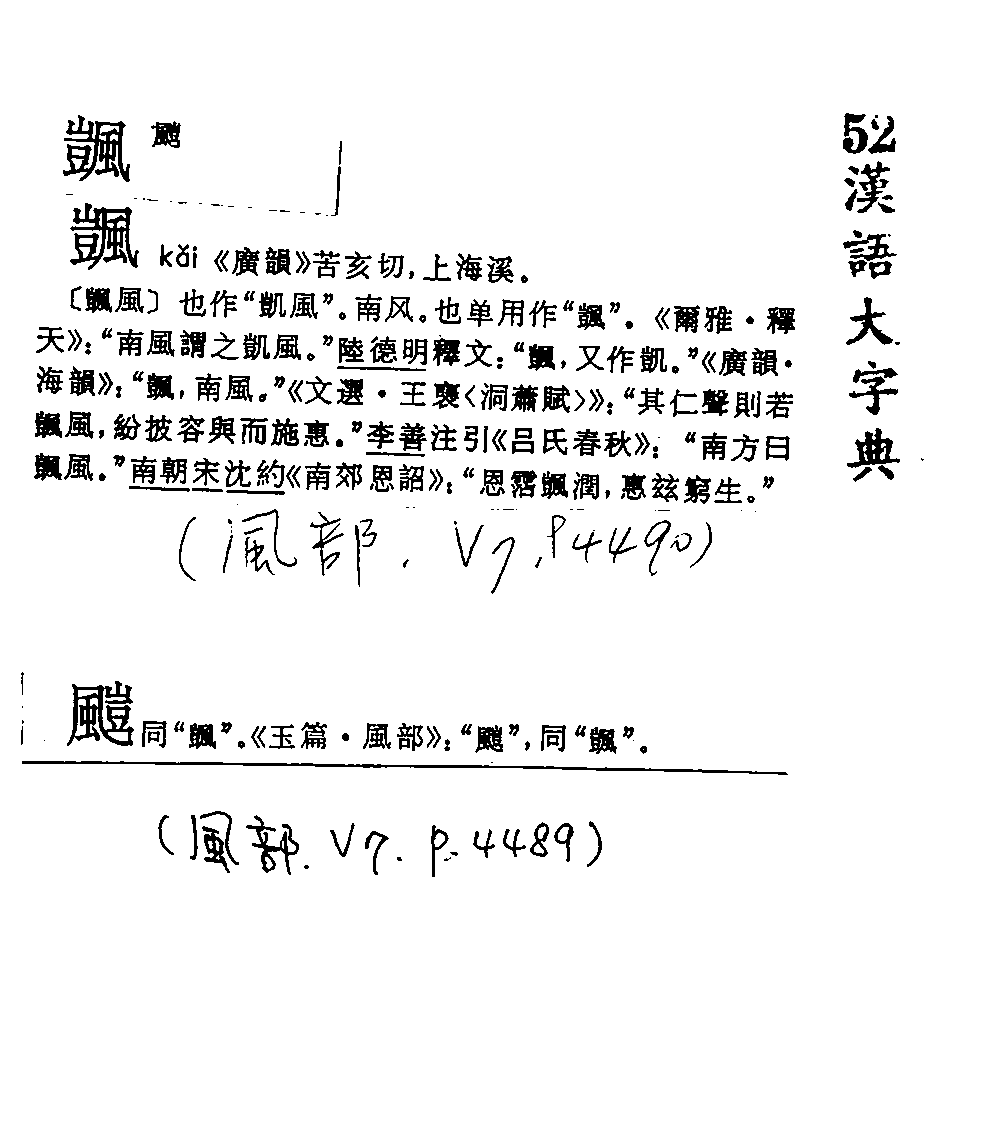 52漢語大字典
颽
颽 kǎi《廣韻》苦亥切,上海溪。
〔颽風〕也作“凱風”。南风。也单用作“颽”。《爾雅·釋
天》:“南風謂之凱風。”陸德明釋文:“颽,又作凱。”《廣韻·
海韻》:“颽,南風。”《文選·王褒〈洞蕭賦〉》:“其仁聲則若
颽風,紛披容與而施惠。”李善注引《吕氏春秋》:“南方曰
颽風。”南朝宋沈約《南郊恩詔》:“恩霑颽潤,惠兹窮生。”
(風部. V7. P4490)
同“颽”。《玉篇·風部》:“”,同“颽”。
(風部. V7. p. 4489)